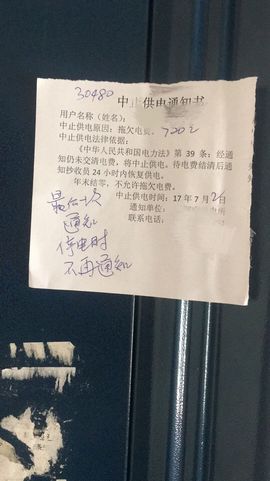 30480
中止供电通知书
用户名称（姓名）：
中止供电原因：拖欠电费、720元
中止供电法律依据：
《中华人民共和国电力法》第 39 条：经通
知仍未交清电费，将中止供电。待电费结清后通
知抄收员 24 小时内恢复供电。
年末结零，不允许拖欠电费。
中止供电时间：17 年 7 月 日
通知单位：
联系电话：
最后一次
通知
停电时
不再通知